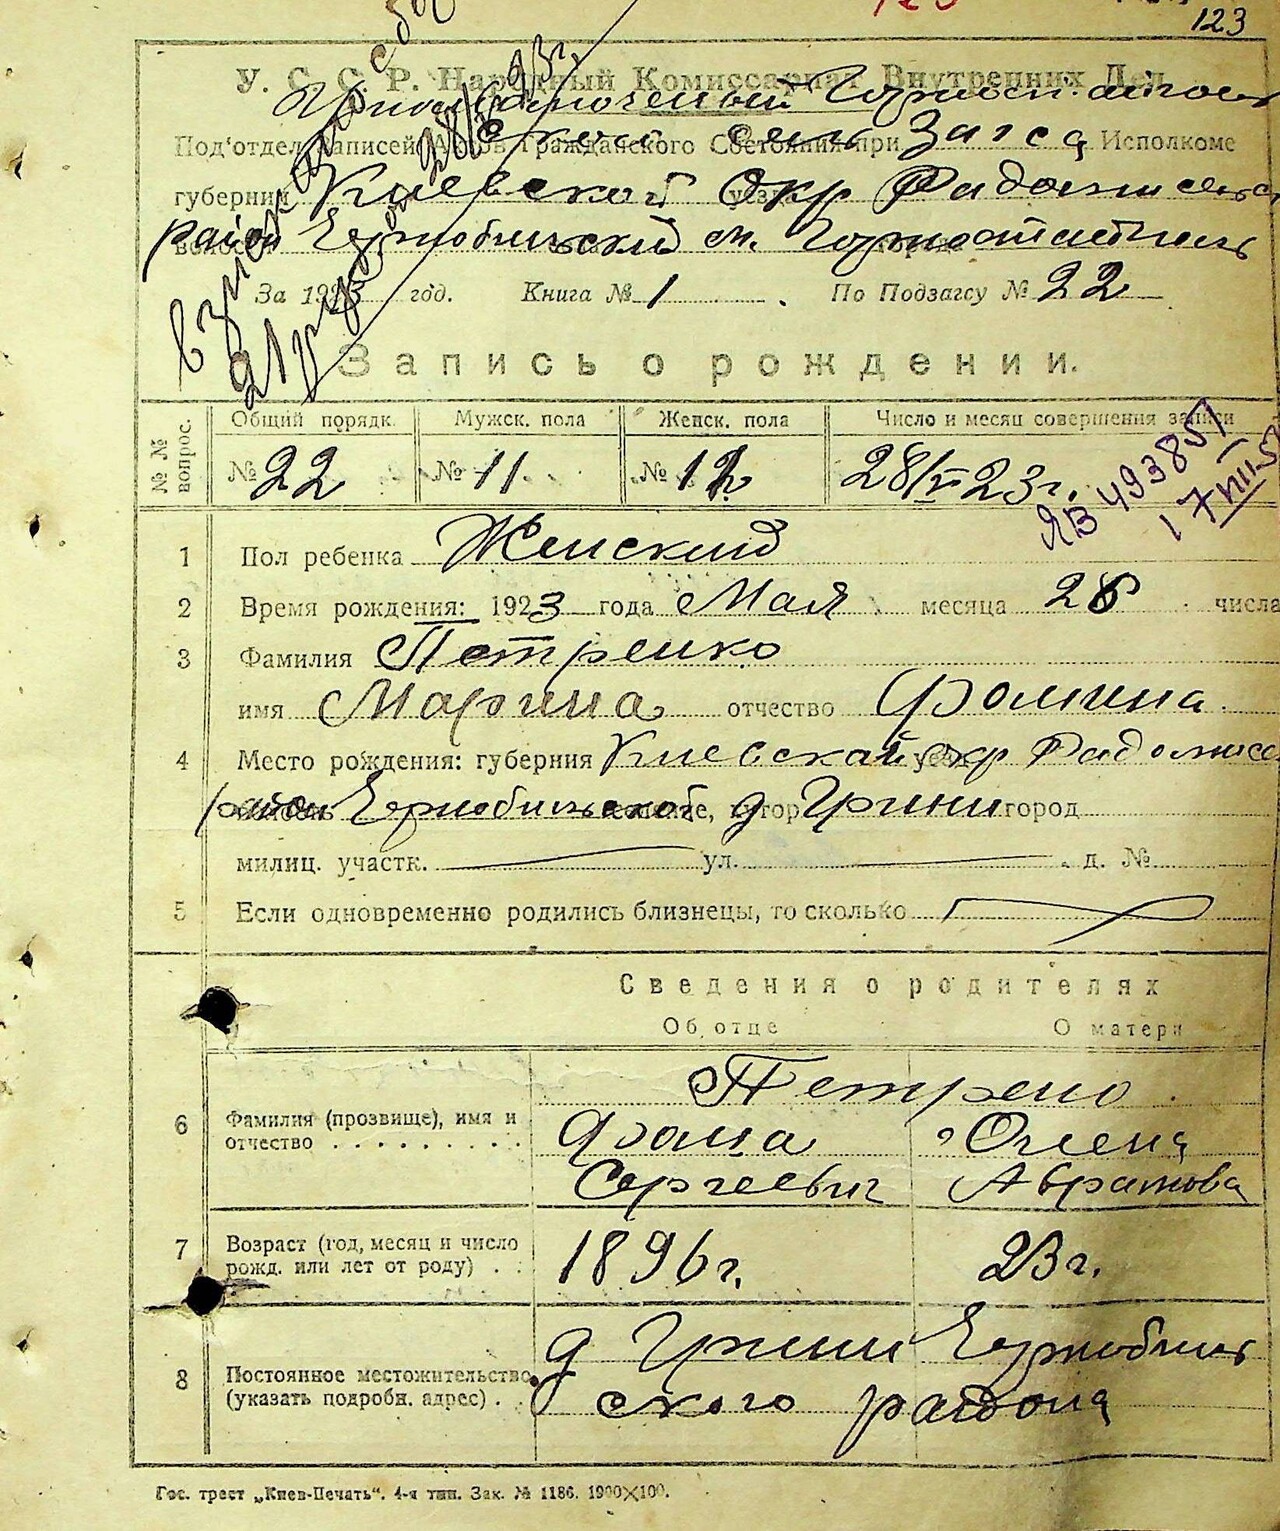 123
У. С. С. Р. Народный Комиссариат Внутренних Дел
Под'отдел Записей Актов Гражданского Состояния при Загса Исполкоме
губернии Киевской Окр Радомисльск
район Чернобильский м. Горностайпиль
За 1923 год. Книга № 1 По Подзагсу № 22
Запись о рождении.
№№ вопрос. Общий порядк. Мужск. пола Женск. пола Число и месяц совершения записи
№ 22 № 11 № 12 28/VI 23 г.
ЯВ 493851
17 VIII 5
1 Пол ребенка Женский
2 Время рождения: 1923 года Мая месяца 28 числа
3 Фамилия Петренко
имя Марина отчество Фомина
4 Место рождения: губерния Киевская окр Радомисл
район Чернобильской селение, хутор д Грини город
милиц. участк. ул. д. №
5 Если одновременно родились близнецы, то сколько
Сведения о родителях
Об отце О матери
Петрено
6 Фамилия (прозвище), имя и Фома Олена
отчество . . . . . . . . . Сергеевич Абрамова
7 Возраст (год, месяц и число 1896 г. 23 г.
рожд. или лет от роду) . .
д Грини Чернобиль
8 Постоянное местожительство
(указать подробн. адрес) . . ского района
Гос. трест „Киев-Печать“. 4-я тип. Зак. № 1186. 1900×100.